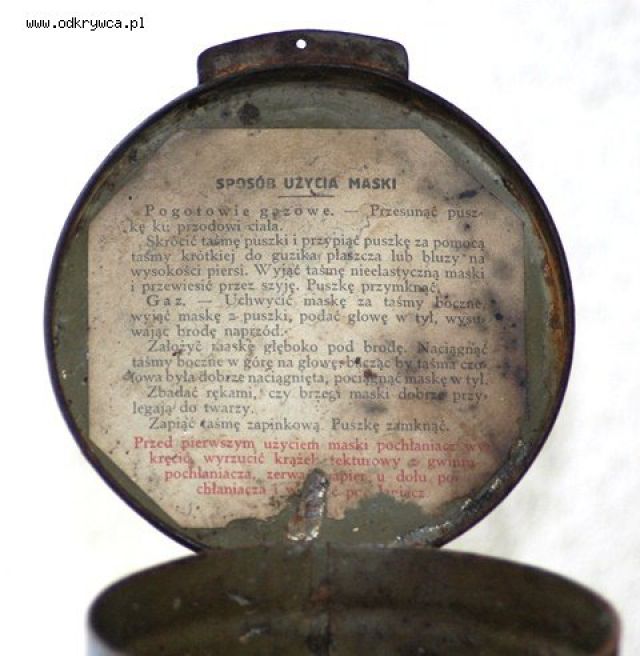 www.odkrywca.pl
SPOSÓB UŻYCIA MASKI
Pogotowie gazowe. — Przesunąć pusz-
kę ku przodowi ciała.
Skrócić taśmę puszki i przypiąć puszkę za pomocą
taśmy krótkiej do guzika płaszcza lub bluzy na
wysokości piersi. Wyjąć taśmę nieelastyczną maski
i przewiesić przez szyję. Puszkę przymknąć.
Gaz. — Uchwycić maskę za taśmy boczne,
wyjąć maskę z puszki, podać głowę w tył, wysu-
wając brodę naprzód.
Założyć maskę głęboko pod brodę. Naciągnąć
taśmy boczne w górę na głowę, bacząc by taśma czo-
łowa była dobrze naciągnięta, pociągnąć maskę w tył.
Zbadać rękami, czy brzegi maski dobrze przy-
legają do twarzy.
Zapiąć taśmę zapinkową. Puszkę zamknąć.
Przed pierwszym użyciem maski pochłaniacz wy-
kręcić, wyrzucić krążek tekturowy z gwintu
pochłaniacza, zerwać papier u dołu po-
chłaniacza i